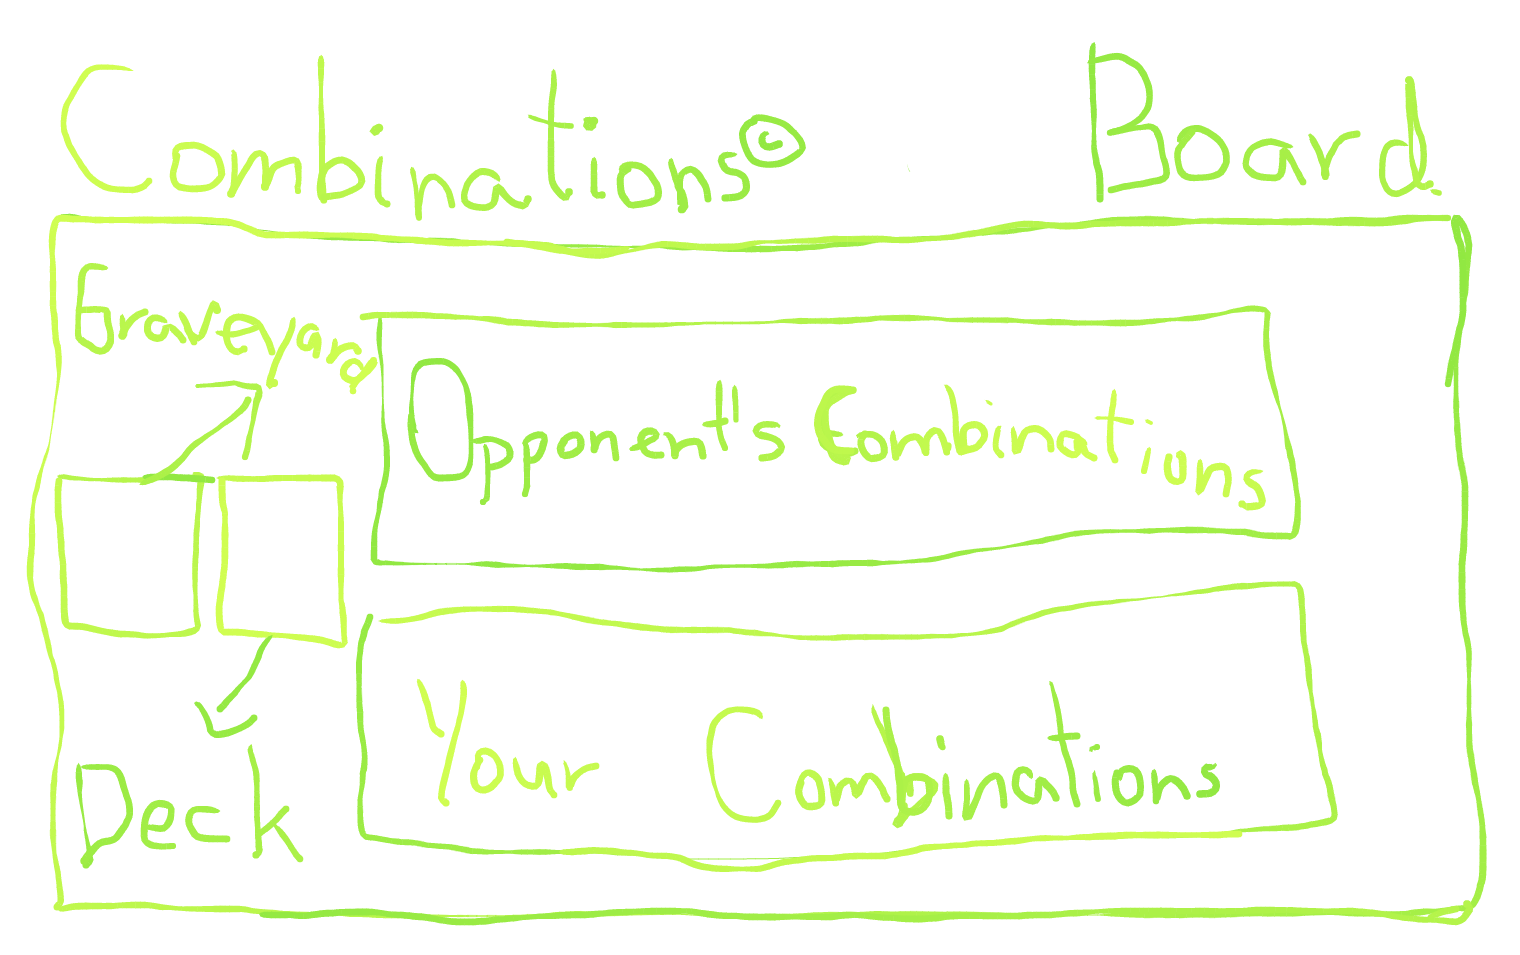 Combinations© Board
Graveyard
Opponent's Combinations
Your Combinations
Deck